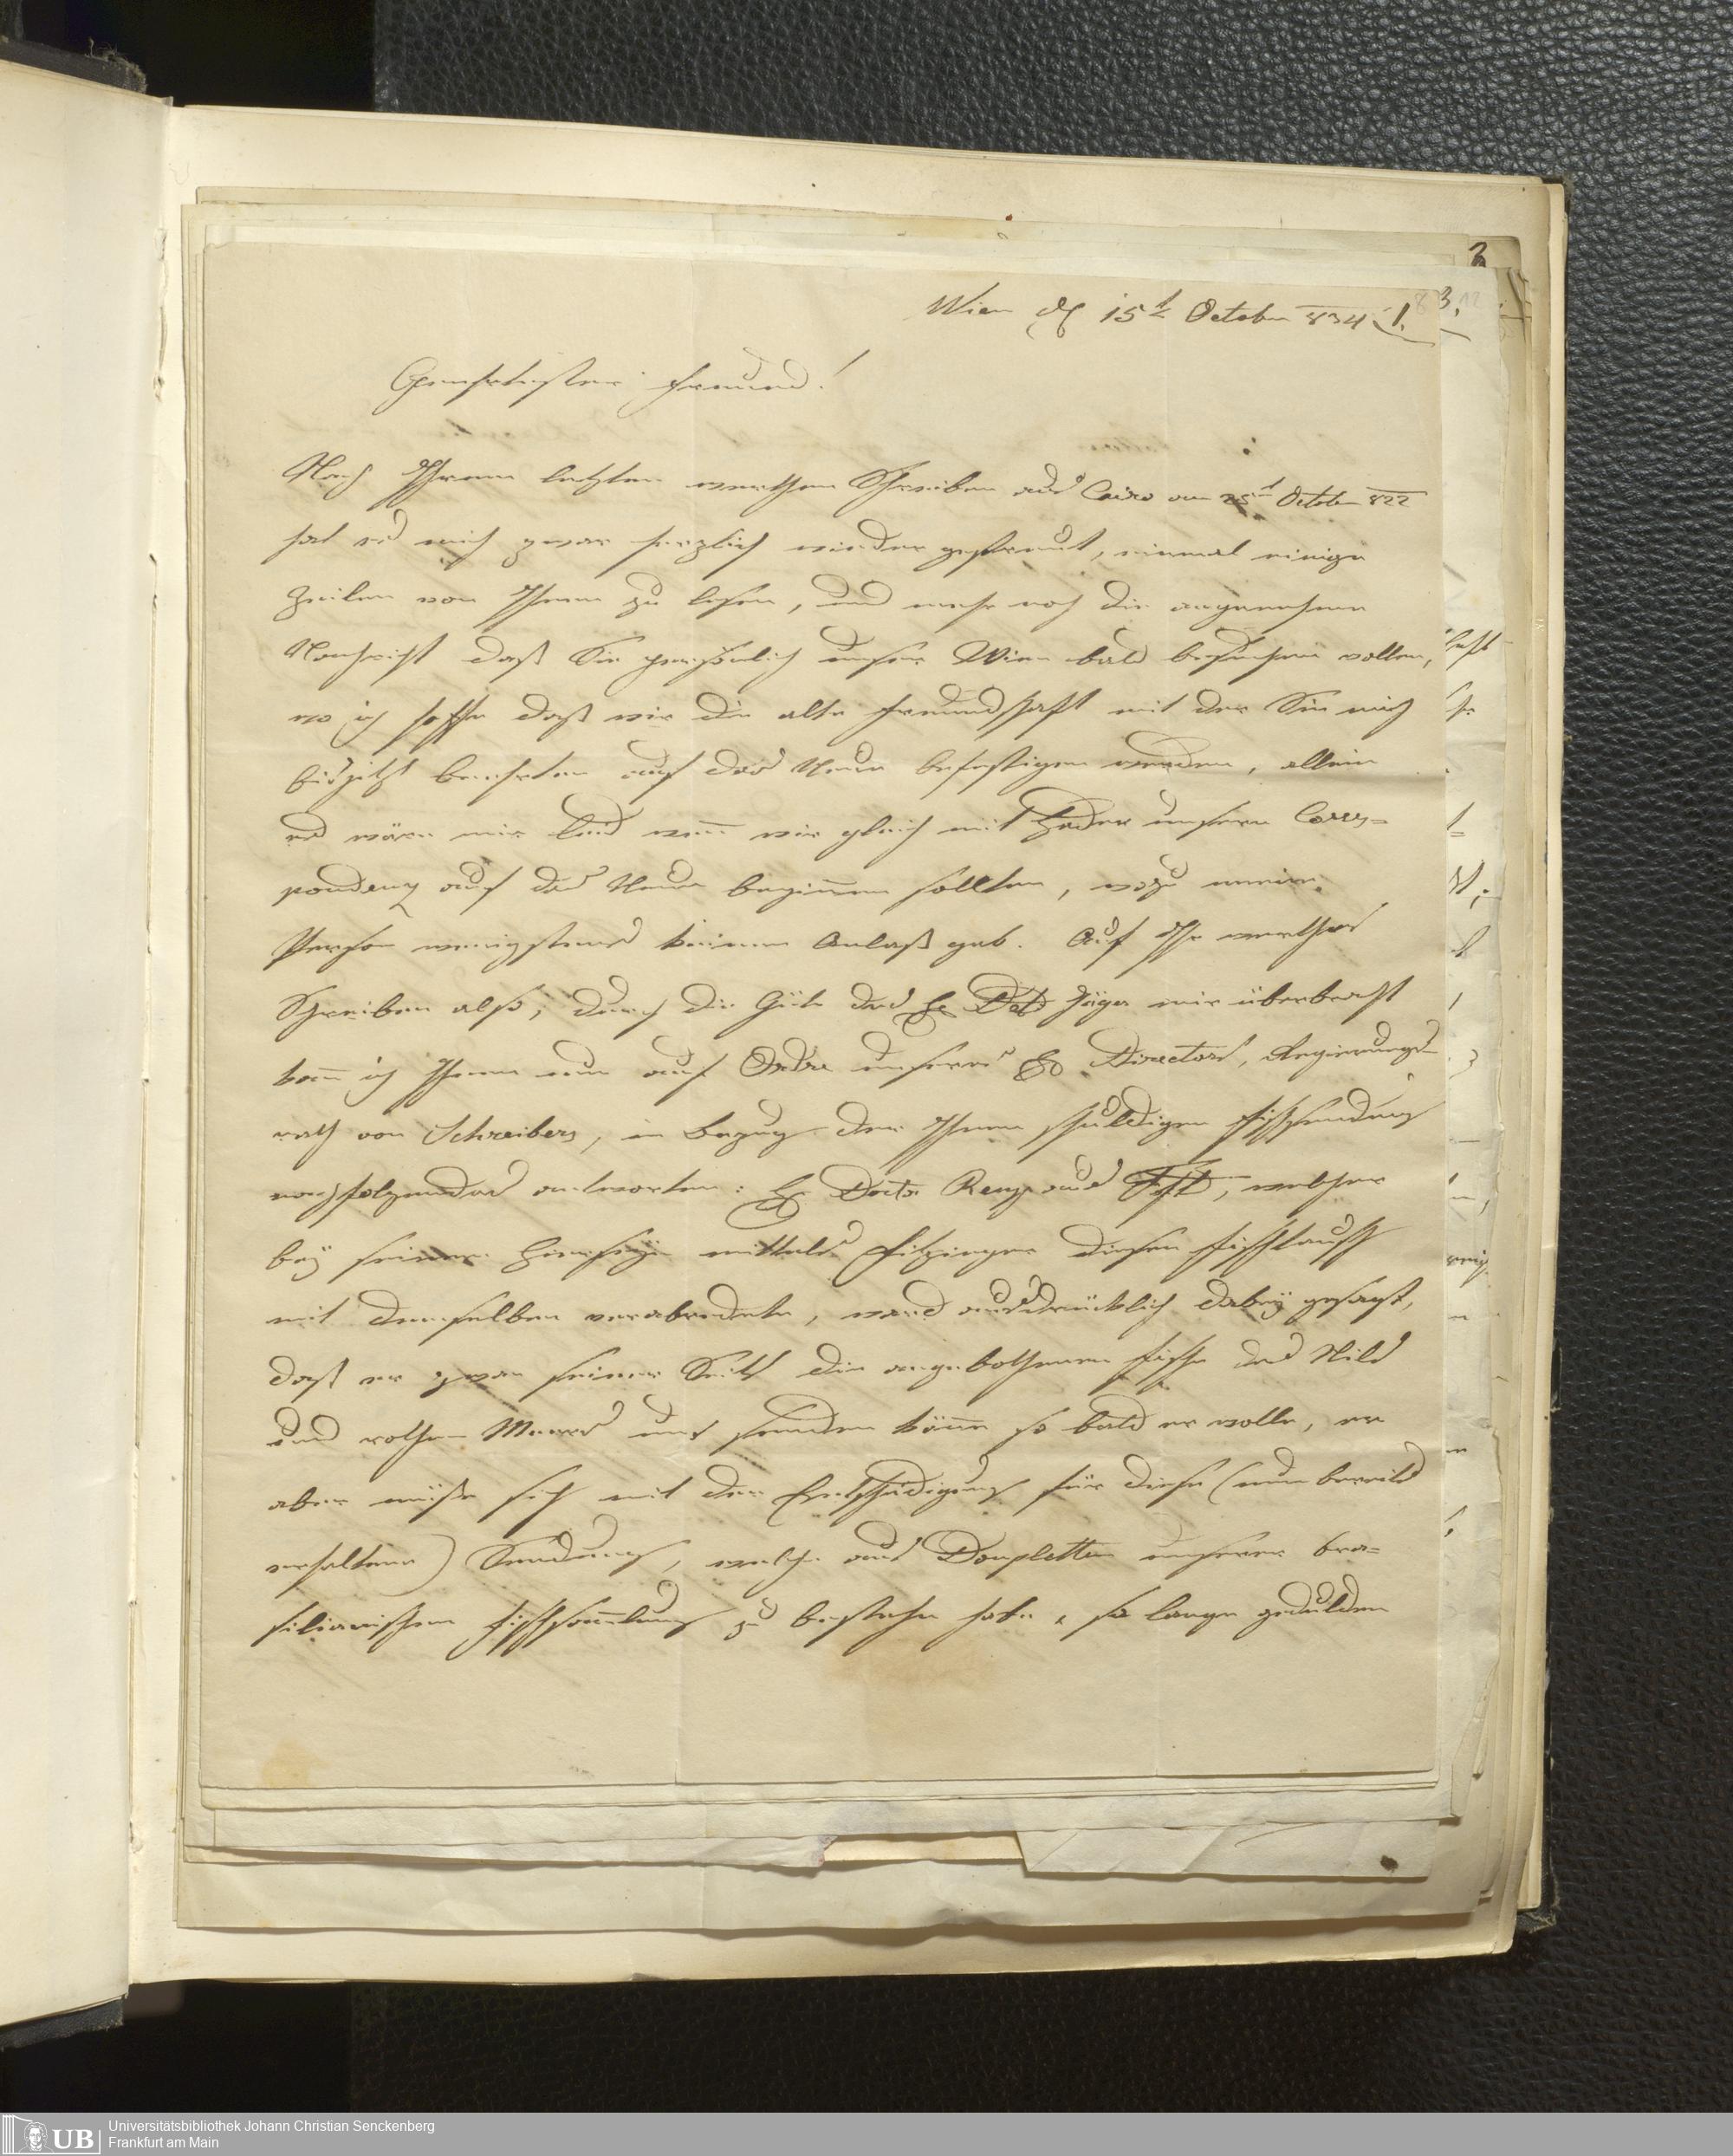 3
Wien d 15t October 834 1.
3.
Geehrtester Freund!
Nach Ihrem letzten werthen Schreiben aus Cairo am 25t October 822
hat es mich zwar herzlich wieder gefreut, einmal einige
Zeilen von Ihnen zu lesen, und mehr noch die angenehme
Nachricht daß Sie persönlich unser Wien bald besuchen wollen,
wo ich hoffe daß wir die alte Freundschaft mit der Sie mich
bis jetzt beehrten auf das Neue befestigen werden, allein
es wäre mir leid wenn wir gleich mit unsere Corres-
pondenz auf das Neue beginnen sollten, wozu meine
Person wenigstens keinen Anlaß gab. Auf Ihr werthes
Schreiben also, durch die Güte des H Jäger mir überbracht
kann ich Ihnen nun auf Ordre unseres H Directors, Regierungs-
rath von Schreibers, in Bezug der Ihnen schuldigen Fischsendung
nachfolgendes antworten: H Doctor aus , welcher
bey seiner mittels Fitzinger diesen Fischtausch
mit demselben verabredete, ward ausdrücklich dabey gesagt,
daß er zwar seiner Seits die angebothenen Fische des Nils
und rothen Meeres uns senden könne so bald er wolle, er
aber müße sich mit der Entschädigung für diese (nun bereits
erhaltene) Sendung, welche aus Doupletten unserer bra-
silianischen Fischsammlung zu bestehen habe, so lange gedulden
UB
Universitätsbibliothek Johann Christian Senckenberg
Frankfurt am Main